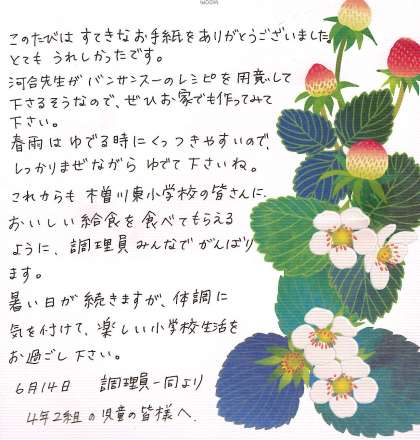 このたびは すてきなお手紙をありがとうございました。
とても うれしかったです。
河合先生が バンサンスーのレシピを用意して
下さるそうなので、ぜひお家でも作ってみて
下さい。
春雨は ゆでる時に くっつきやすいので、
しっかりまぜながら ゆでて下さいね。
これからも 木曽川東小学校の皆さんに、
おいしい給食を食べてもらえる
ように、調理員みんなでがんばり
ます。
暑い日が続きますが、体調に
気を付けて、楽しい小学校生活を
お過ごし下さい。
6月14日 調理員一同より
4年2組の児童の皆様へ.